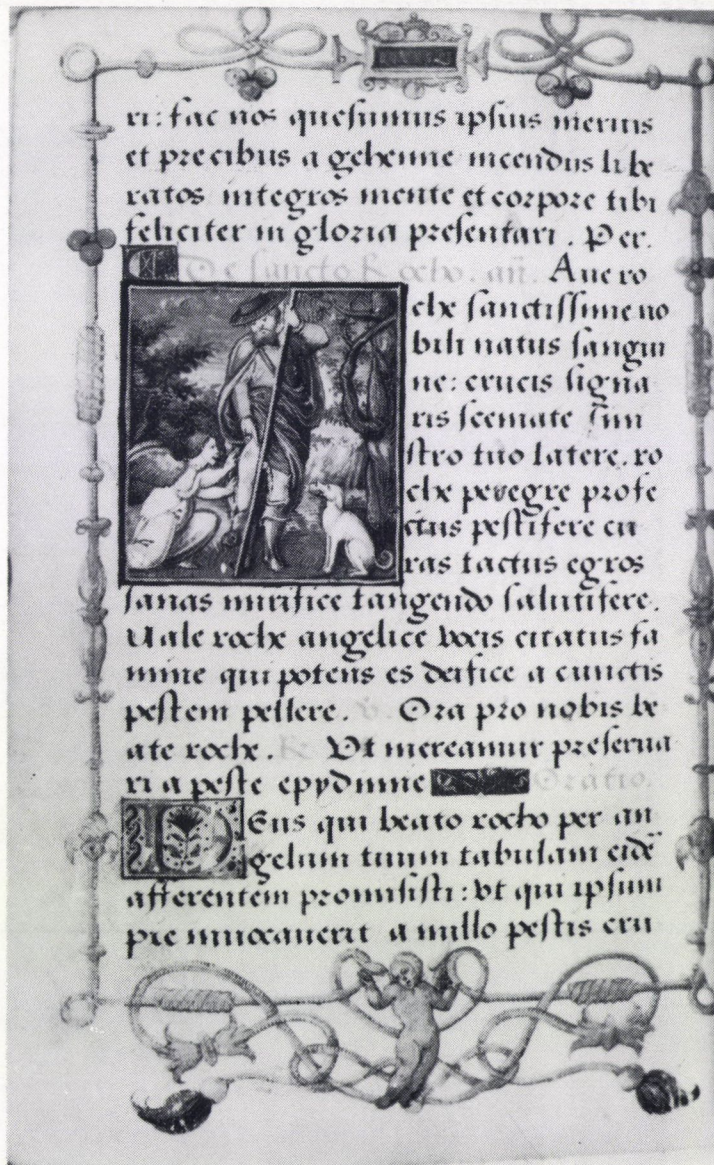 ri: fac nos quesumus ipsius meritis
et precibus a gehenne incendiis libe
ratos integros mente et corpore tibi
feliciter in gloria presentari. Per.
De sancto Rocho. añ. Aue ro
che sanctissime no
bili natus sangui
ne: crucis signa
ris scemate sini
stro tuo latere. ro
che peregre profe
ctus pestifere cu
ras tactus egros
sanas mirifice tangendo salutifere.
Uale roche angelice vocis citatus fa
mine qui potens es deifice a cunctis
pestem pellere. Ora pro nobis be
ate roche. R. Vt mereamur preserua
ri a peste epydimie Oratio.
DEus qui beato rocho per an
gelum tuum tabulam eidē
afferentem promisisti: vt qui ipsum
pie inuocauerit a nullo pestis cru